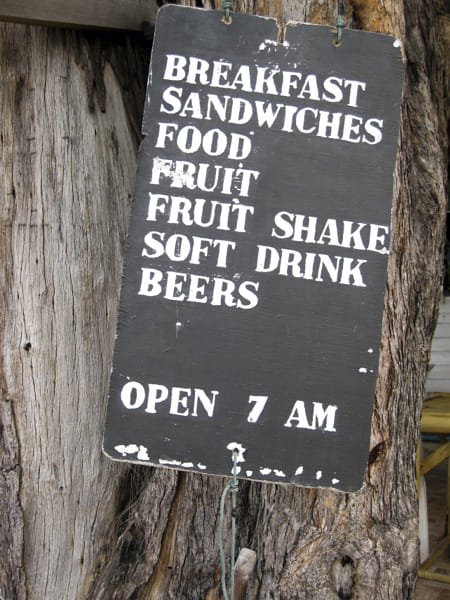 BREAKFAST
SANDWICHES
FOOD
FRUIT
FRUIT SHAKE
SOFT DRINK
BEERS
OPEN 7 AM